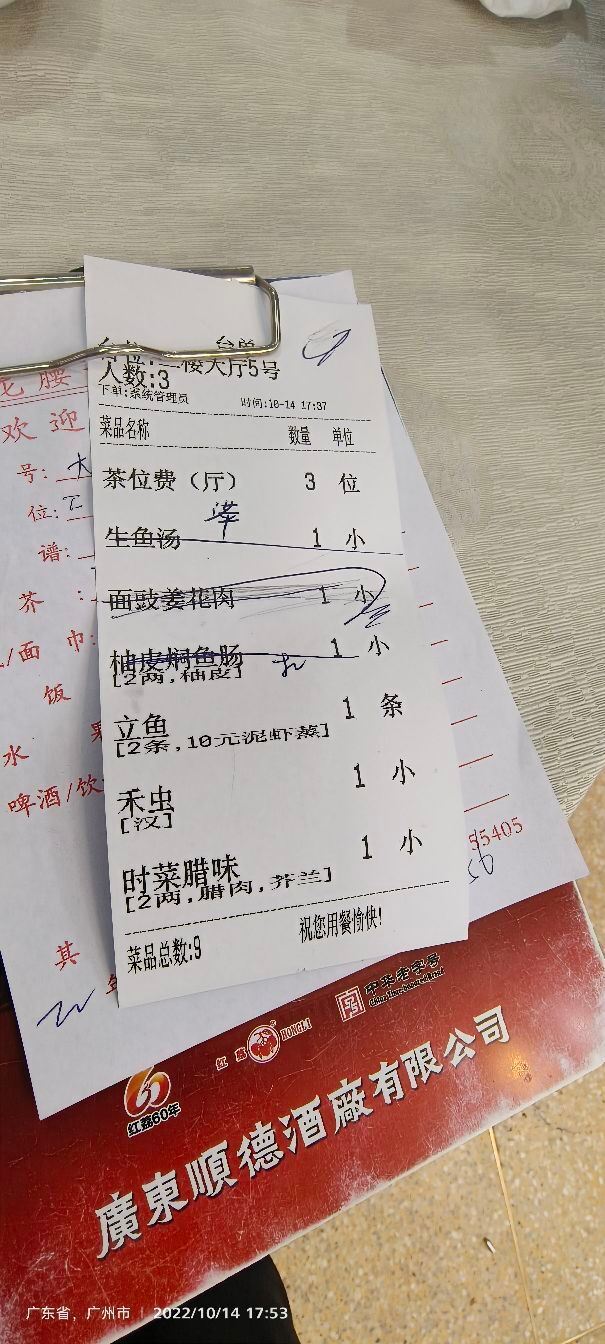 人数:3
楼大厅5号
下单:系统管理员 时间:10-14 17:37
菜品名称 数量 单位
茶位费（厅） 3 位
生鱼汤 1 小
面豉姜花肉 1 小
柚皮焖鱼肠 1 小
[2两,柚皮]
立鱼 1 条
[2条,10元泥虾蒸]
禾虫 1 小
时菜腊味 1 小
[2两,腊肉,芥兰]
菜品总数:9 祝您用餐愉快!
欢迎
号:
位:
谱:
芥:
/面巾:
饭
水 果
啤酒/饮
55405
其
红荔60年
红荔 HONGLI
中华老字号
廣東順德酒廠有限公司
广东省，广州市 | 2022/10/14 17:53